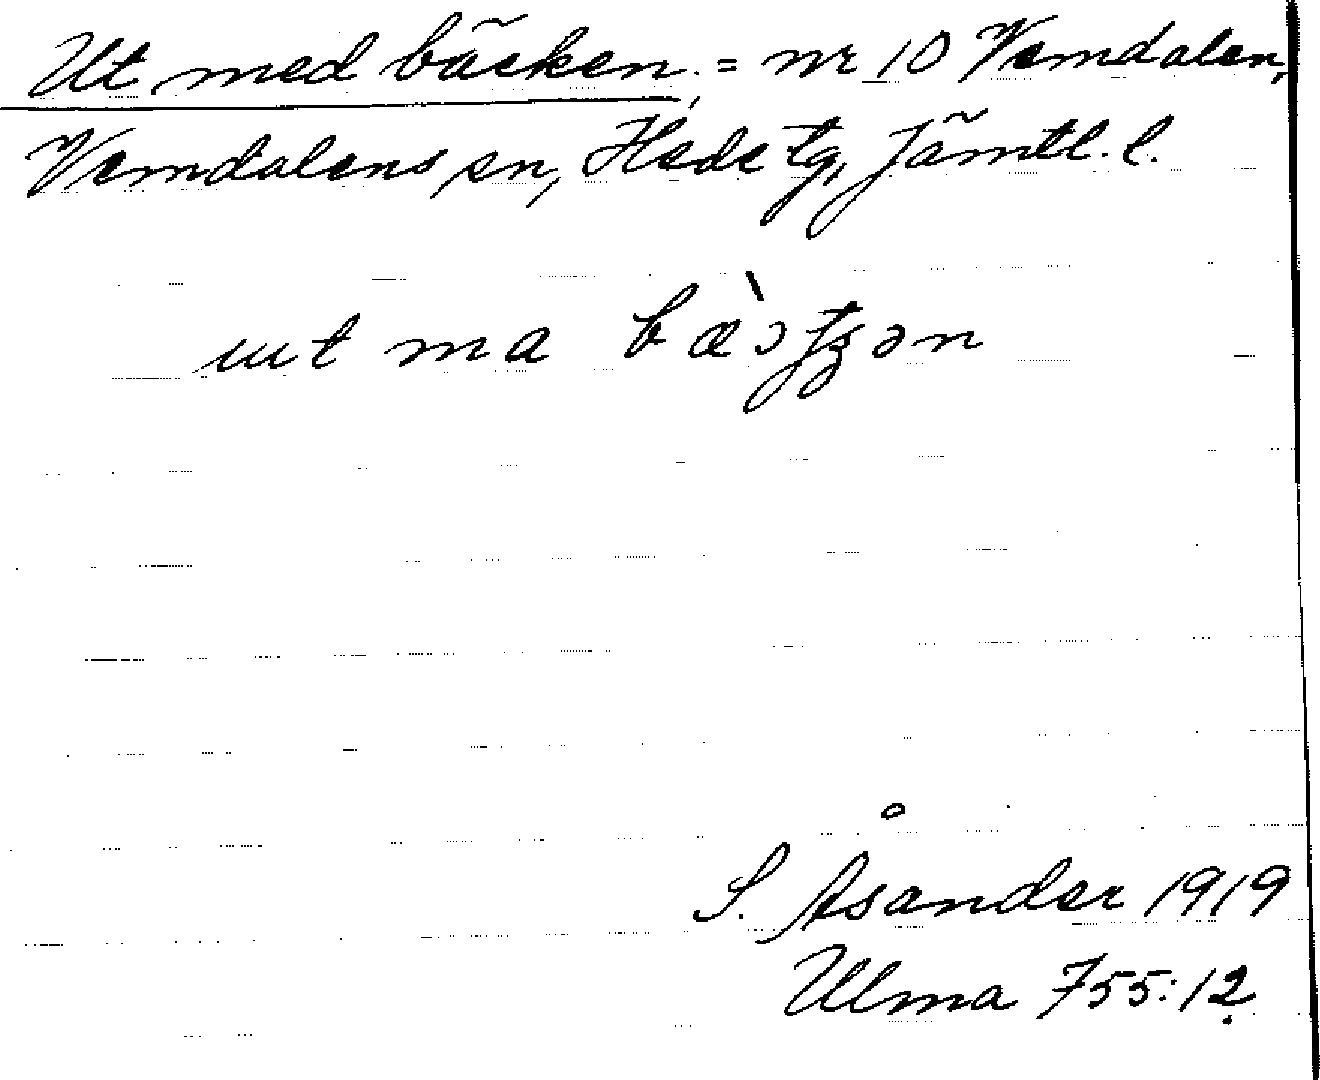 Ut med bäcken. = nr 10 Vemdalen,
Vemdalens sn, Hede tg, Jämtl. l.
ut ma
S. Åsander 1919
Ulma 755:12